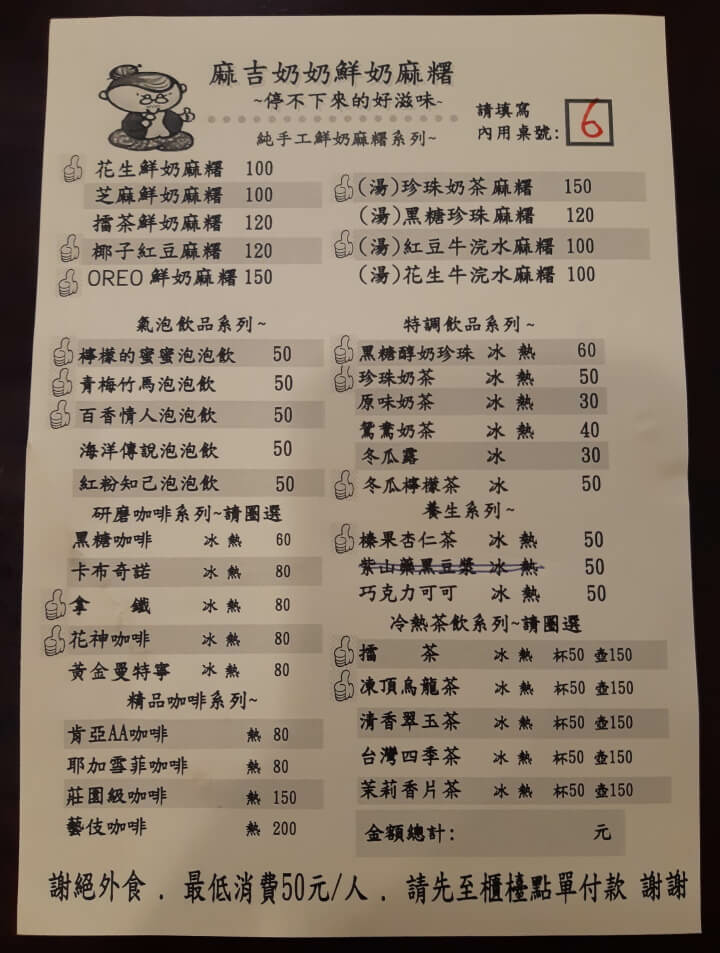 麻吉奶奶鮮奶麻糬
~停不下來的好滋味~
請填寫
內用桌號: 6
純手工鮮奶麻糬系列~
花生鮮奶麻糬 100
芝麻鮮奶麻糬 100
擂茶鮮奶麻糬 120
椰子紅豆麻糬 120
OREO 鮮奶麻糬 150
(湯)珍珠奶茶麻糬 150
(湯)黑糖珍珠麻糬 120
(湯)紅豆牛浣水麻糬 100
(湯)花生牛浣水麻糬 100
氣泡飲品系列~
檸檬的蜜蜜泡泡飲 50
青梅竹馬泡泡飲 50
百香情人泡泡飲 50
海洋傳說泡泡飲 50
紅粉知己泡泡飲 50
研磨咖啡系列~請圈選
黑糖咖啡 冰 熱 60
卡布奇諾 冰 熱 80
拿 鐵 冰 熱 80
花神咖啡 冰 熱 80
黃金曼特寧 冰 熱 80
精品咖啡系列~
肯亞AA咖啡 熱 80
耶加雪菲咖啡 熱 80
莊園級咖啡 熱 150
藝伎咖啡 熱 200
特調飲品系列~
黑糖醇奶珍珠 冰 熱 60
珍珠奶茶 冰 熱 50
原味奶茶 冰 熱 30
鴛鴦奶茶 冰 熱 40
冬瓜露 冰 30
冬瓜檸檬茶 冰 50
養生系列~
榛果杏仁茶 冰 熱 50
紫山藥黑豆漿 冰 熱 50
巧克力可可 冰 熱 50
冷熱茶飲系列~請圈選
擂 茶 冰 熱 杯50 壺150
凍頂烏龍茶 冰 熱 杯50 壺150
清香翠玉茶 冰 熱 杯50 壺150
台灣四季茶 冰 熱 杯50 壺150
茉莉香片茶 冰 熱 杯50 壺150
金額總計: 元
謝絕外食 . 最低消費50元/人 . 請先至櫃檯點單付款 謝謝